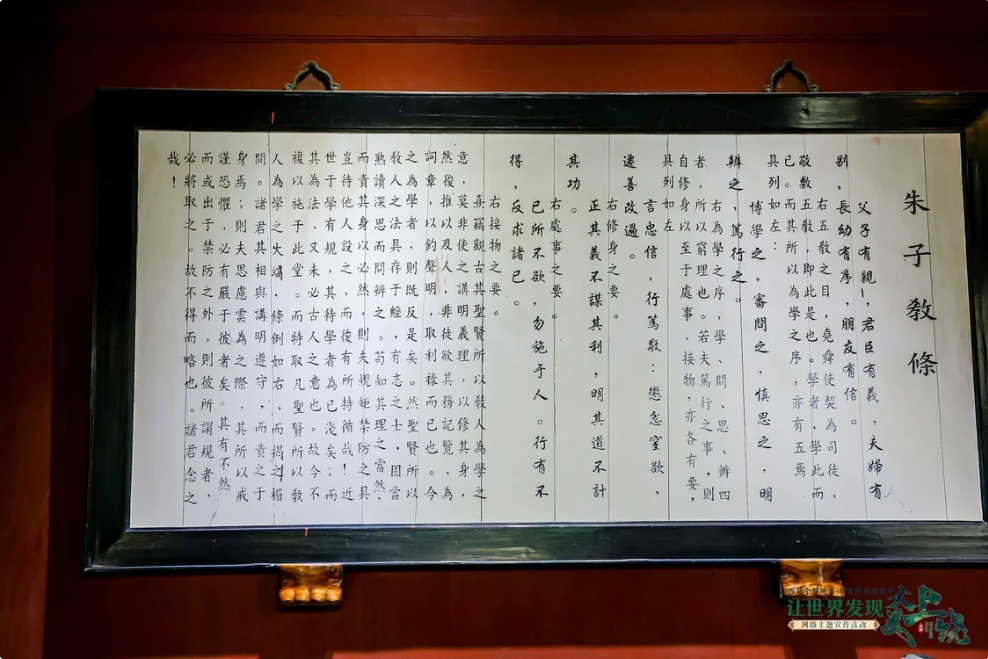 朱子教條
父子有親,君臣有義,夫婦有
別,長幼有序,朋友有信。
右五教之目,堯舜使契為司徒,
敬敷五教,即此是也。學者,學此而
已。而其所以為學之序,亦有五焉
具列如左:
博學之,審問之,慎思之.明
辨之,篤行之。
右為學之序,學、問、思、辨四
者,所以窮理也。若夫篤行之事,則
自修身以至于處事、接物,亦各有要,
具列如左
言忠信,行篤敬:懲忿窒欲,
遷善改過。
右修身之要。
正其義不謀其利,明其道不計
其功。
右處事之要。
己所不欲,勿施于人。行有不
得,反求諸己。
右接物之要
熹竊觀古其聖賢所以教人為學之
意,莫非使之講明義理,以修其身,
然後推以及人,非徒欲其務記覽,為
詞章,以釣聲明,取利祿而已也。今
之為學者,則既反是矣。然聖賢所以
教人之法具存于經,有志之士,固當
熟讀深思而問辨之。苟知其理之當然
而責其身以必然,則夫規矩禁防之具
豈待他人設之,而後有所持循哉!近
世于學有規,其待學者為已淺矣;而
其為法.又未必古人之意也。故今不
複以施于此堂。而特取凡聖賢所以教
人為學之大端,條例如右,而揭之楣
間。諸君其相與講明遵守,而責之于
身焉;則夫思慮雲為之際,其所以戒
謹恐懼,必有嚴于彼者矣。其有不然
而或出于禁防之外,則彼所謂規者,
必將取之。故不得而略也。諸君念之
哉!
让世界发现
网络主题宣传活动